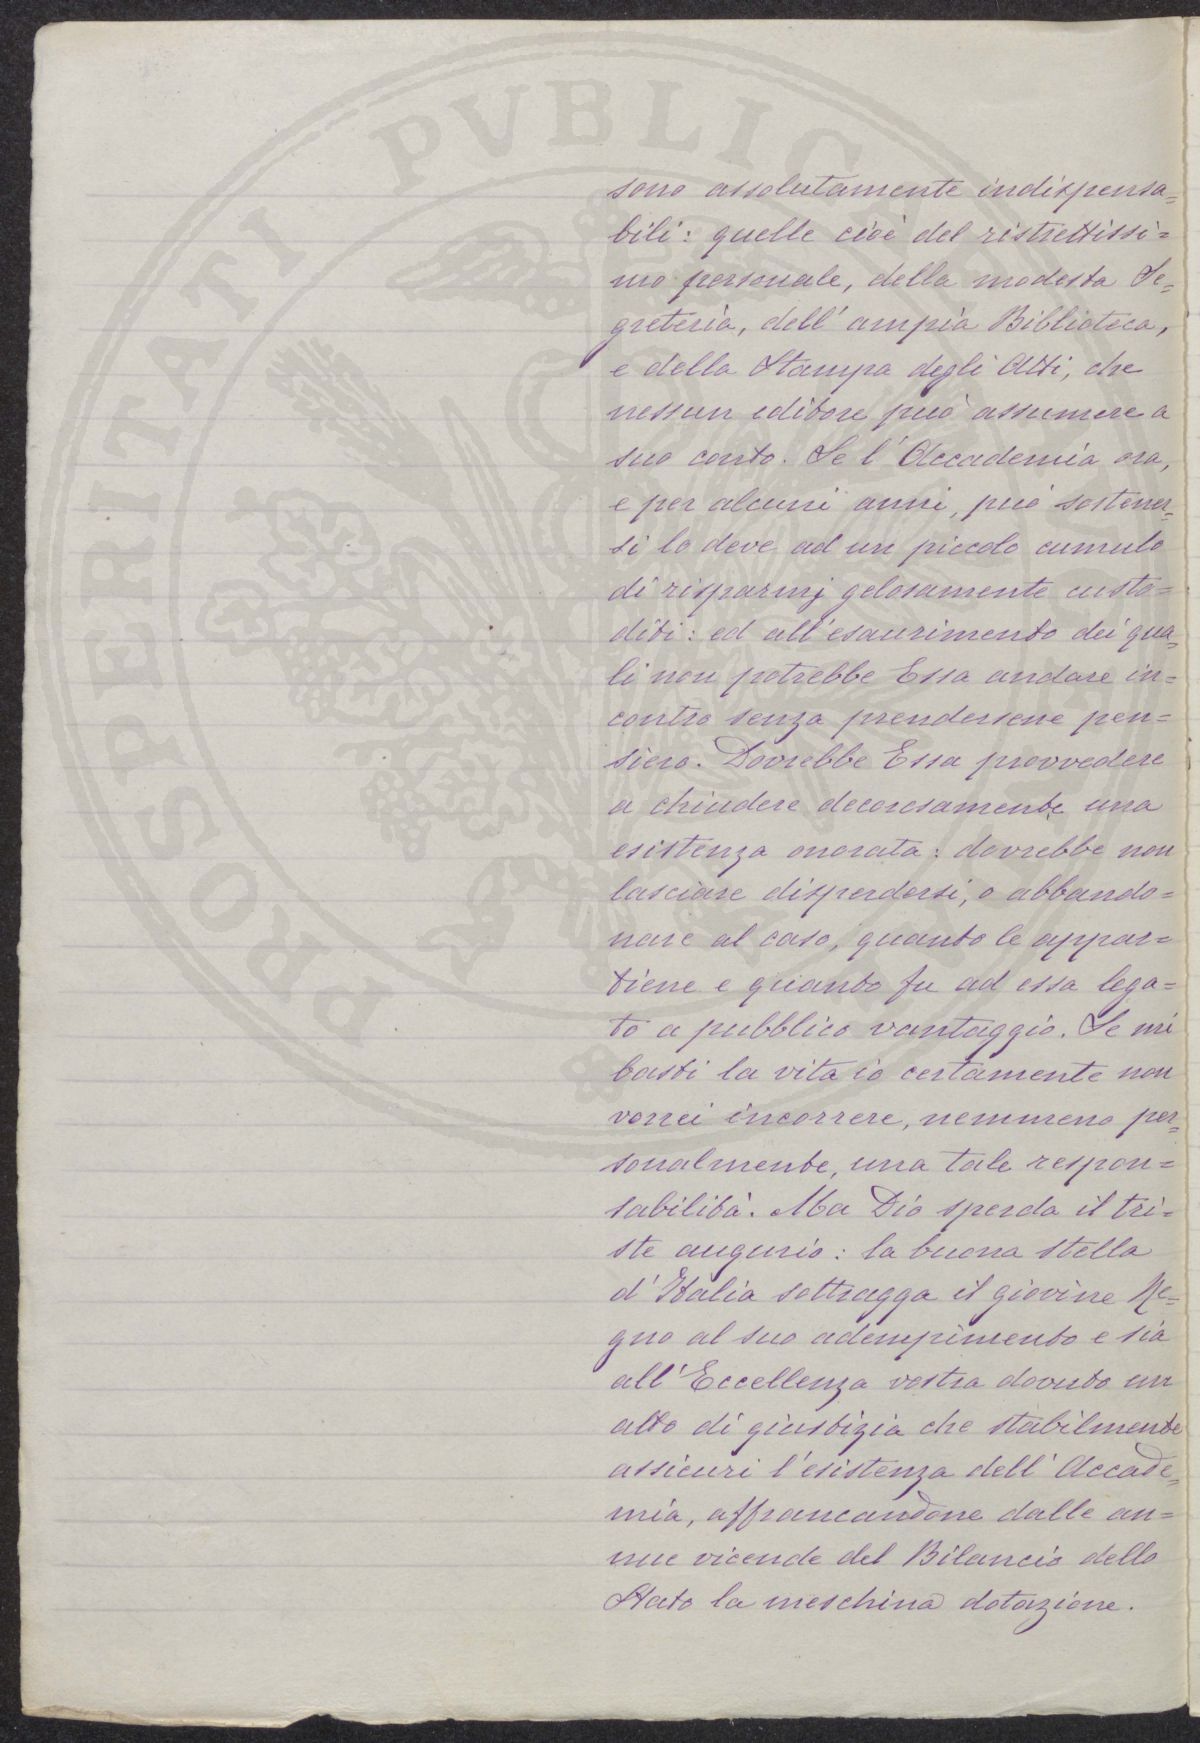 PROSPERITATI PUBLICAE AUGENDAE
sono assolutamente indispensa=
bili: quelle cioè del ristrettissi=
mo personale, della modesta Se=
greteria, dell'ampia Biblioteca,
e della Stampa degli Atti, che
nessun editore può assumere a
suo conto. Se l'Accademia ora,
e per alcuni anni, può sostener=
si lo deve ad un piccolo cumulo
di risparmj gelosamente custo=
diti: ed all'esaurimento dei qua=
li non potrebbe Essa andare in=
contro senza prendersene pen=
siero. Dovrebbe Essa provvedere
a chiudere decorosamente una
esistenza onorata: dovrebbe non
lasciare disperdersi, o abbando=
nare al caso, quanto le appar=
tiene e quanto fu ad essa lega=
to a pubblico vantaggio. Se mi
basti la vita io certamente non
vorrei incorrere, nemmeno per=
sonalmente, una tale respon=
sabilità. Ma Dio sperda il tri=
ste augurio: la buona stella
d'Italia sottragga il giovine Re=
gno al suo adempimento e sia
all'Eccellenza vostra dovuto un
atto di giustizia che stabilmente
assicuri l'esistenza dell'Accade=
mia, affrancandone dalle an=
nue vicende del Bilancio dello
Stato la meschina dotazione.